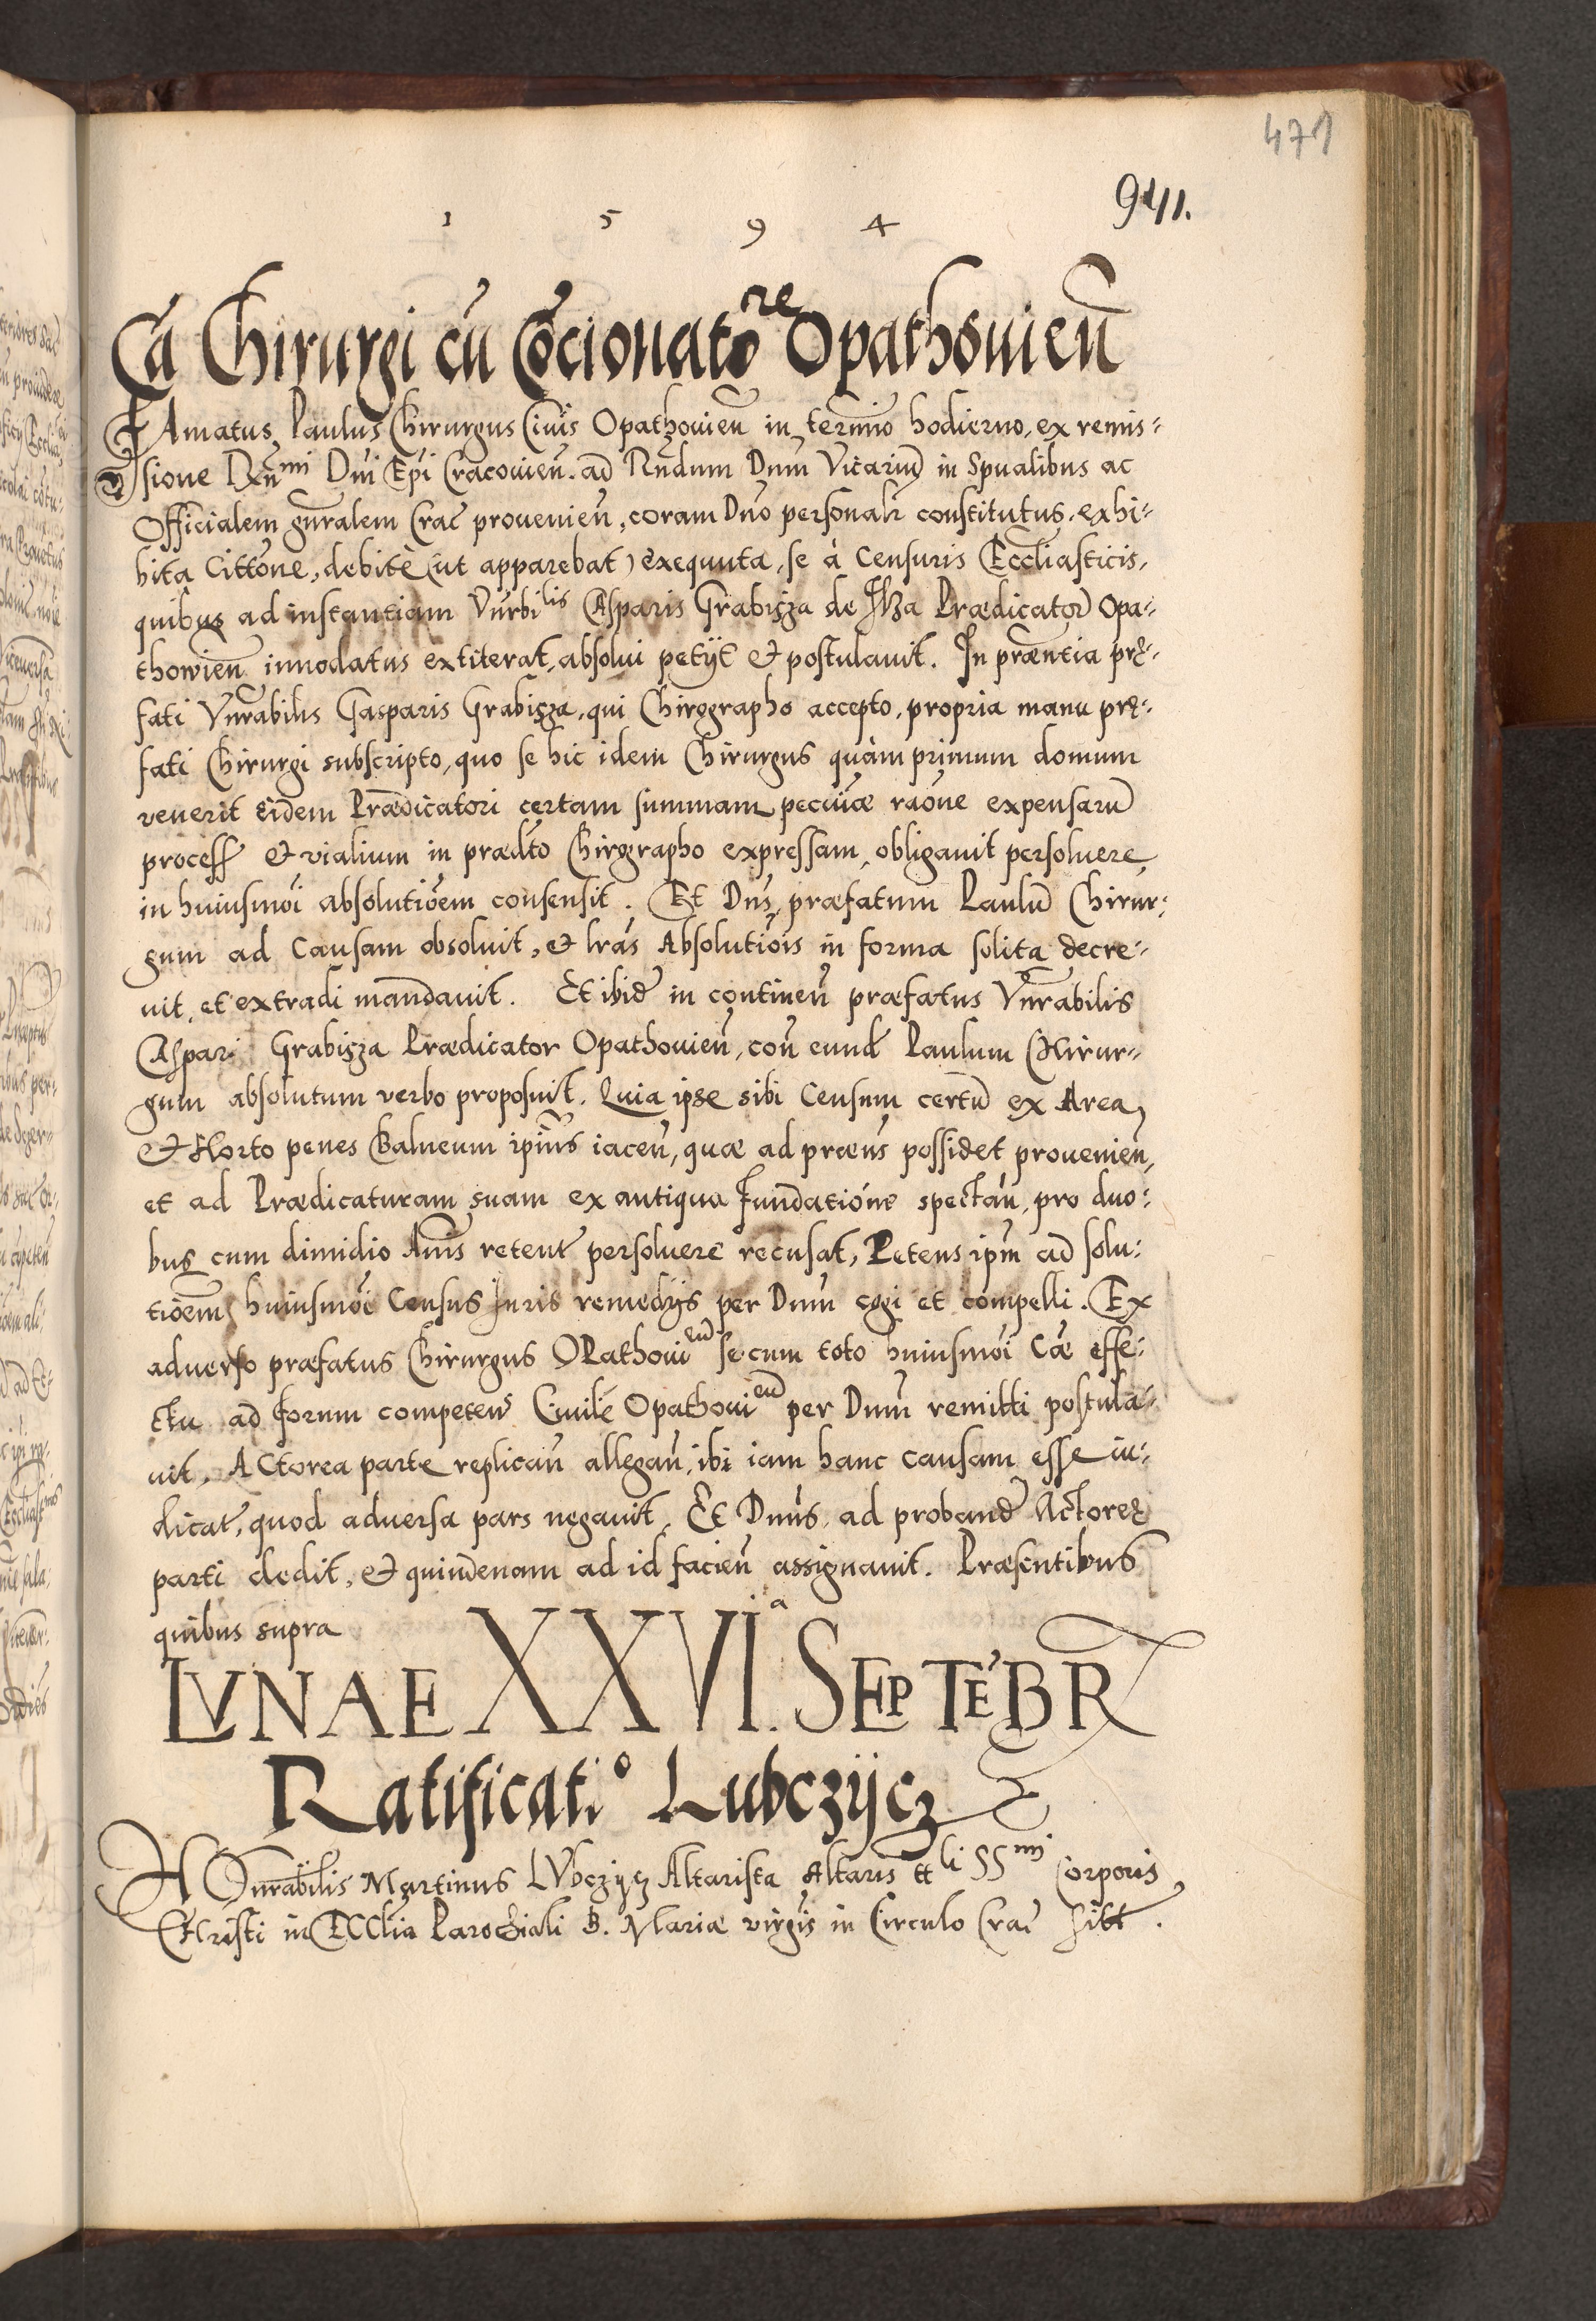 471
941.
1 5 9 4
Cā Chirurgi cū Cōcionatore Opathouien̄
FAmatus Paulus Chirurgus Ciuis Opathouien̄ in termīo hodierno, ex remis-
sione Rn̄mi Dn̄i Epi Cracouien̄. ad Rn̄dum Dnm̄ Vicariū in Spualibus ac
Officialem gn̄ralem Crac̄ prouenien̄, coram Dn̄o personalr constitutus, exhi-
bita Cittōne, debitè (ut apparebat) exequuta, se à Censuris Eccl̄iasticis,
quibus ad instantiam Vn̄rbilis CAsparis Grabisza de Ilza Prædicator Opa-
thowien̄ innodatus extiterat, absolui petijt et postulauit. In præn̄tia prę-
fati Vn̄rabilis Gasparis Grabisza, qui Chirographo accepto, propria manu prę-
fati Chirurgi subscripto, quo se hic idem Chirurgus quàm primum domum
venerit eidem Prædicatori certam summam pecuiæ raōne expensarū
process et vialium in prædto Chirographo expressam, obligauit persoluere,
in huiusmoi absolutiōem consensit. Et Dn̄s, præfatum Paulū Chirur-
gum ad Causam obsoluit, et lrās Absolutiōis in forma solita decre-
uit, et extradi mandauit. Et ibid̄ in continen̄ præfatus Vn̄rabilis
CAspar Grabisza Prædicator Opathouien̄, con̄ eund̄ Paulum CHirur-
gum absolutum verbo proposuit. Quia ipse sibi Censum certū ex Area,
et Horto penes Balneum ipīus iacen̄, quæ ad præn̄s possidet prouenien̄,
et ad Prædicaturam suam ex antiqua Fundatiōne spectan̄, pro duo-
bus cum dimidio An̄is retent̄ persoluere recusat, Petens ipm̄ ad solu-
tiōem huiusmoi Census Iuris remedijs per Dnm̄ cogi et compelli. Ex
aduerso præfatus Chirurgus OPathouien̄ se cum toto huiusmoi Cæ effe-
ctu ad forum competen̄ Ciuile Opathouien̄ per Dnm̄ remitti postula-
uit, ACtorea parte replican̄ allegan̄, ibi iam hanc causam esse iu-
dicat̄, quod aduersa pars negauit. Et Dn̄us, ad proband̄ Actoreę
parti dedit, et quindenam ad id facien̄ assignauit. Præsentibus
quibus supra
LVNAE XXVI.a SEPTĒBR
Ratificatio Lubczijcz
HOnrabilis Martinus LVbczijcz Altarista Altaris ttli SSmi Corporis
CHristi in ECClia Parochiali B. Mariæ virgis in Circulo Crac̄ sitt.